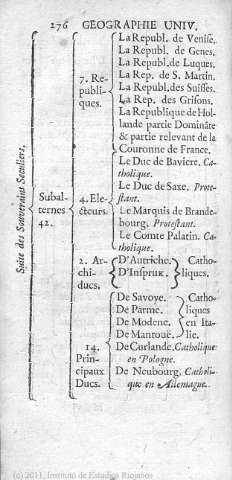 276 GEOGRAPHIE UNIV.
Suite des Souverains Seculiers.
Subal-
ternes
42.
7. Re-
publi-
ques.
La Republ. de Venise.
La Republ. de Genes.
La Republ. de Luques.
La Rep. de S. Martin.
La Republ. des Suisses.
La Rep. des Grisons.
La Republique de Hol-
lande partie Dominãte
& partie relevant de la
Couronne de France.
4. Ele-
cteurs.
Le Duc de Baviere. Ca-
tholique.
Le Duc de Saxe. Prote-
stant.
Le Marquis de Brande-
bourg. Protestant.
Le Comte Palatin. Ca-
tholique.
2. Ar-
chi-
ducs.
D'Autriche.
D'Inspruk.
Catho-
liques.
14.
Prin-
cipaux
Ducs.
De Savoye.
De Parme.
De Modene.
De Mantoüe.
Catho-
liques
en Ita-
lie.
De Curlande. Catholique
en Pologne.
De Neubourg. Catholi-
que en Allemagne.
(c) 2011, Instituto de Estudios Riojanos